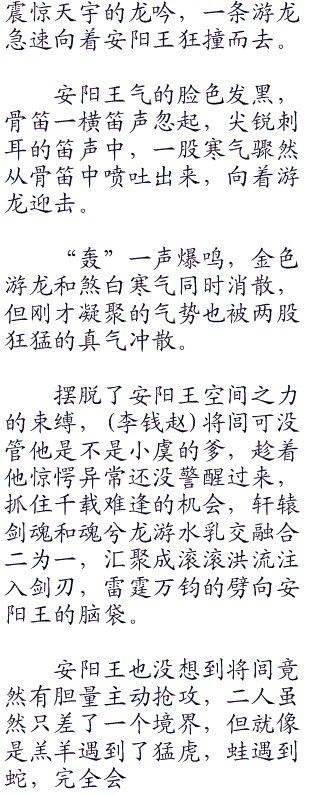 震惊天宇的龙吟，一条游龙
急速向着安阳王狂撞而去。
安阳王气的脸色发黑，
骨笛一横笛声忽起，尖锐刺
耳的笛声中，一股寒气骤然
从骨笛中喷吐出来，向着游
龙迎去。
“轰”一声爆鸣，金色
游龙和煞白寒气同时消散，
但刚才凝聚的气势也被两股
狂猛的真气冲散。
摆脱了安阳王空间之力
的束缚，(李钱赵)将闾可没
管他是不是小虞的爹，趁着
他惊愕异常还没警醒过来，
抓住千载难逢的机会，轩辕
剑魂和魂兮龙游水乳交融合
二为一，汇聚成滚滚洪流注
入剑刃，雷霆万钧的劈向安
阳王的脑袋。
安阳王也没想到将闾竟
然有胆量主动抢攻，二人虽
然只差了一个境界，但就像
是羔羊遇到了猛虎，蛙遇到
蛇，完全会